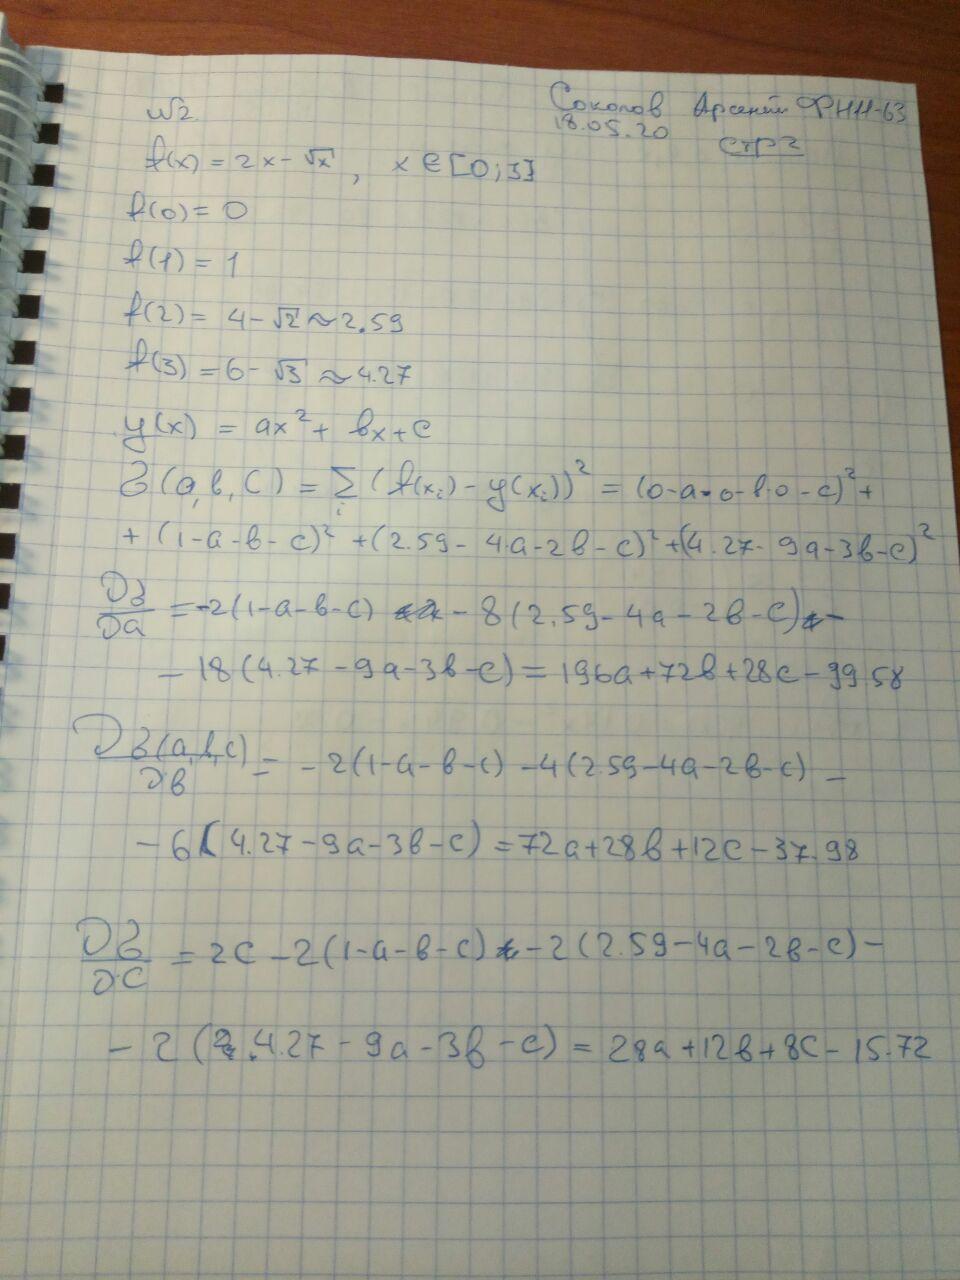 Соколов Арсений ФН11-63
18.05.20
стр 2
№2
f(x) = 2x - √x, x ∈ [0;3]
f(0) = 0
f(1) = 1
f(2) = 4 - √2 ≈ 2.59
f(3) = 6 - √3 ≈ 4.27
y(x) = ax² + bx + c
З(a,b,c) = Σᵢ (f(xᵢ) - y(xᵢ))² = (0 - a·0 - b·0 - c)² +
+ (1 - a - b - c)² + (2.59 - 4a - 2b - c)² + (4.27 - 9a - 3b - c)²
∂З/∂a = -2(1 - a - b - c) - 8(2.59 - 4a - 2b - c) -
- 18(4.27 - 9a - 3b - c) = 196a + 72b + 28c - 99.58
∂З(a,b,c)/∂b = -2(1 - a - b - c) - 4(2.59 - 4a - 2b - c) -
- 6(4.27 - 9a - 3b - c) = 72a + 28b + 12c - 37.98
∂З/∂c = 2c - 2(1 - a - b - c) - 2(2.59 - 4a - 2b - c) -
- 2(4.27 - 9a - 3b - c) = 28a + 12b + 8c - 15.72